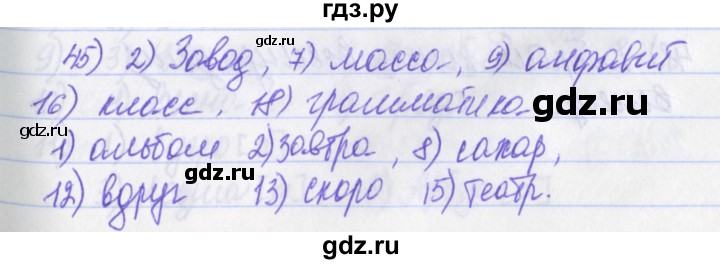 гдз.ру
45) 2) Завод, 7) масса, 9) алфавит
gdz.ru
gdz.ru
16) класс, 18) грамматика
gdz.ru
gdz.ru
1) альбом 2) завтра, 8) сахар,
12) вдруг 13) скоро 15) театр.
gdz.ru
gdz.ru